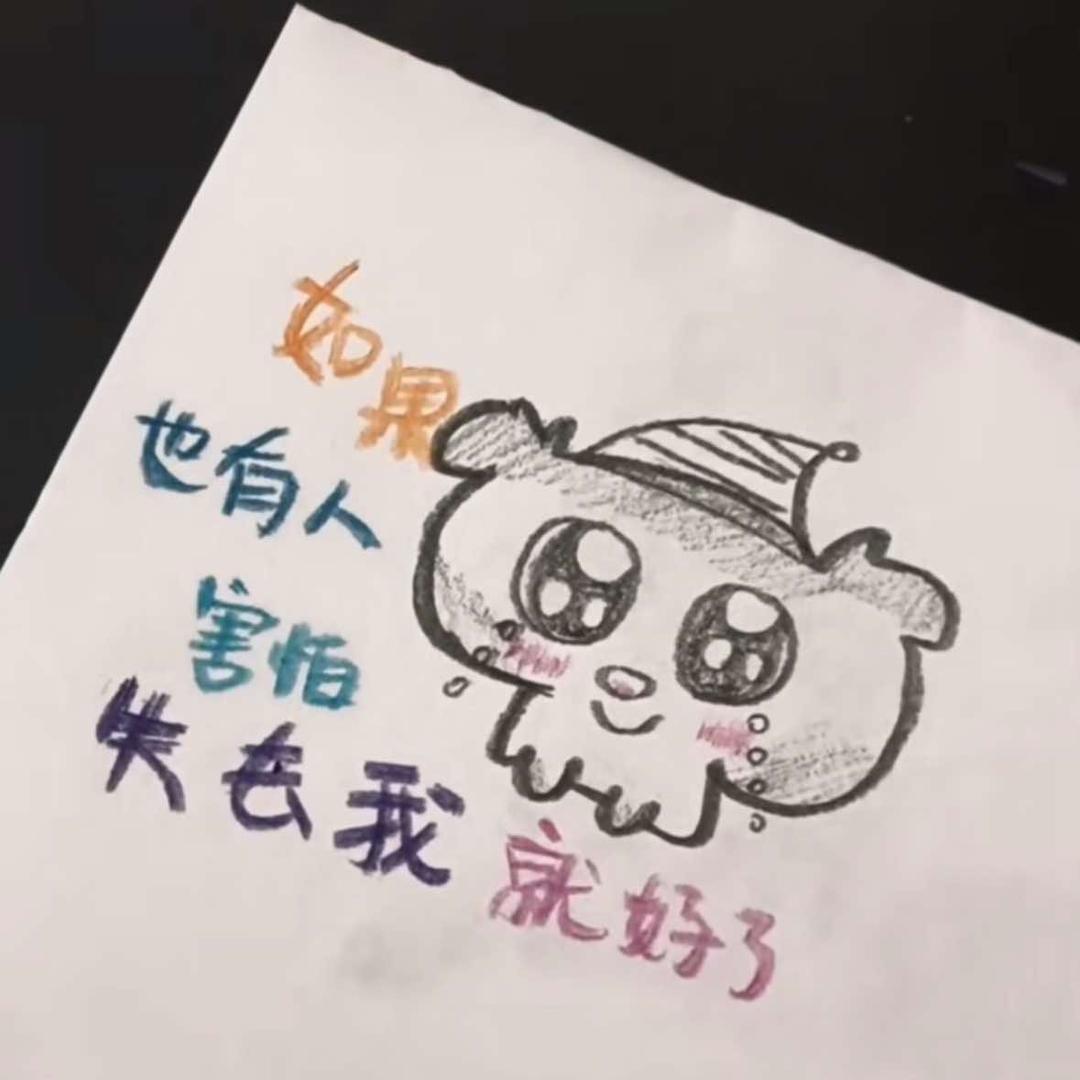 如果
也有人
害怕
失去我
就好了